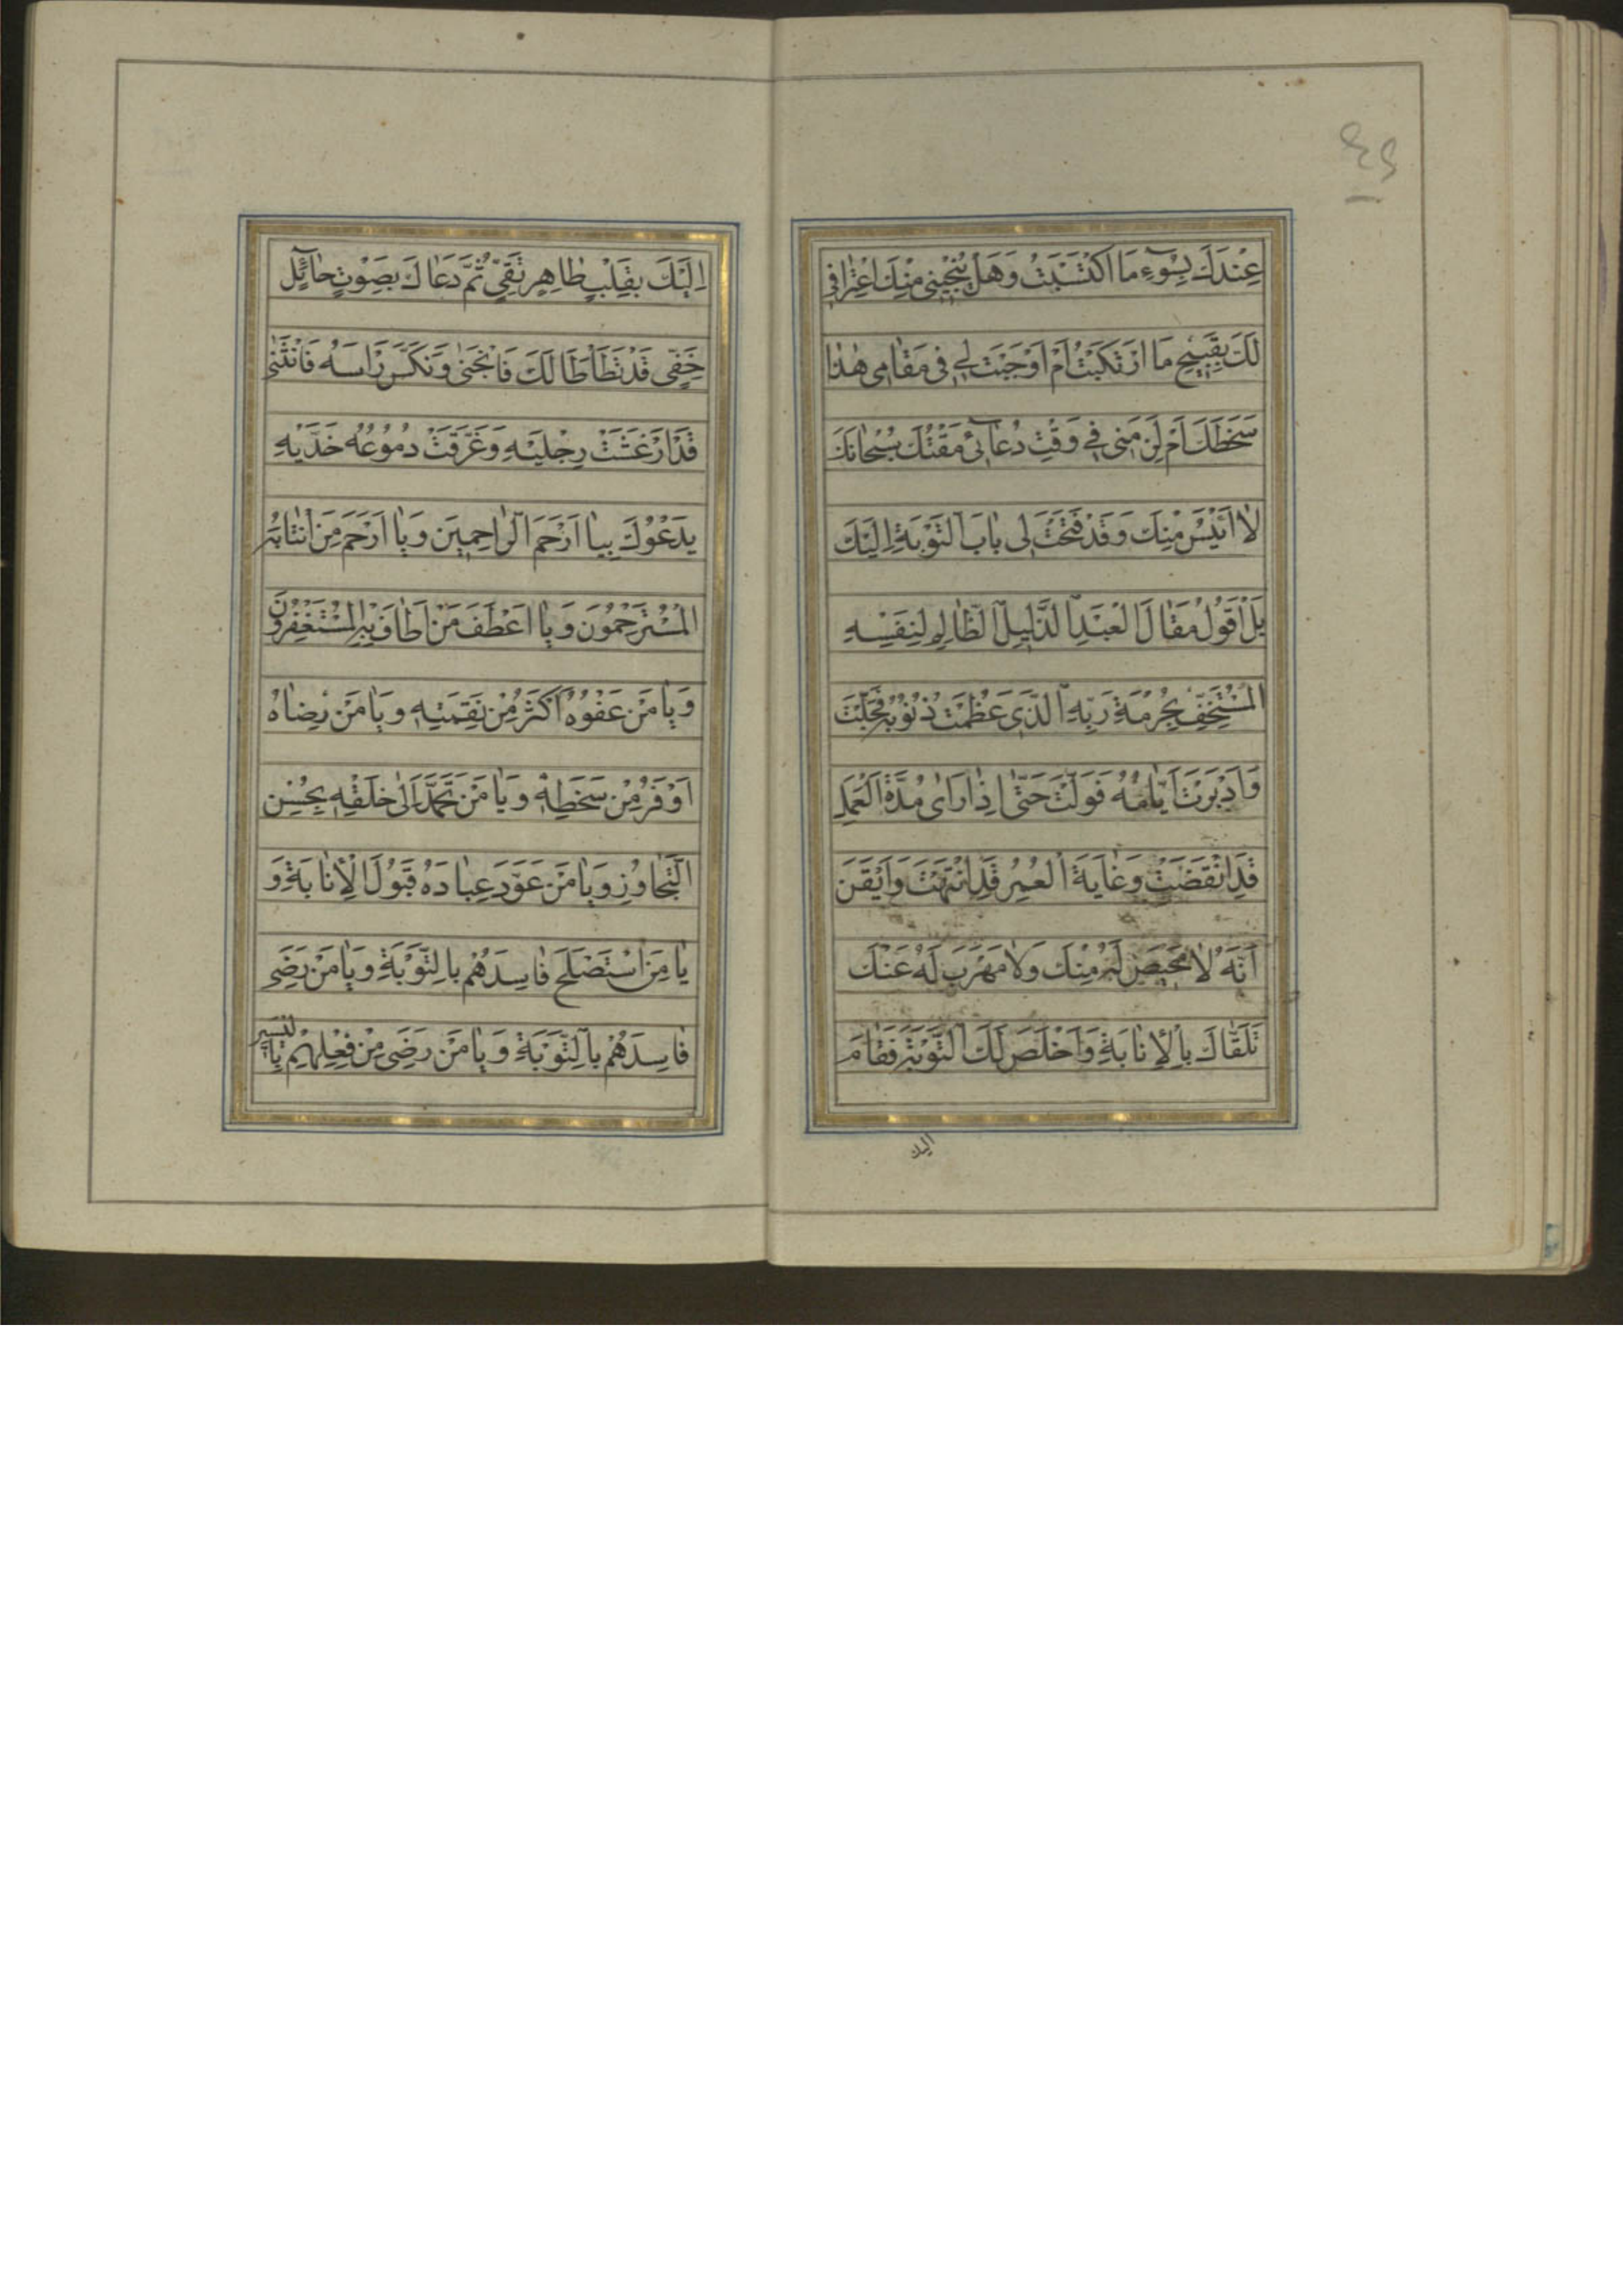 ٤٩
عِنْدَكَ بِسُوۤءِ مَا اكْتَسَبْتُ وَهَلْ يُنْجِيْنِى مِنْكَ اعْتِرَافِى
لَكَ بِقَبِيْحِ مَا ارْتَكَبْتُ اَمْ اَوْجَبْتَ لِى فِى مَقَامِى هٰذَا
سَخَطَكَ اَمْ لَزِمَنِى فِى وَقْتِ دُعَائِى مَقْتُكَ سُبْحَانَكَ
لَا اَيْئَسُ مِنْكَ وَقَدْ فَتَحْتَ لِى بَابَ التَّوْبَةِ اِلَيْكَ
بَلْ اَقُولُ مَقَالَ الْعَبْدِ الذَّلِيلِ الظَّالِمِ لِنَفْسِهِ
الْمُسْتَخِفِّ بِحُرْمَةِ رَبِّهِ الَّذِى عَظُمَتْ ذُنُوبُهُ فَجَلَّتْ
وَاَدْبَرَتْ اَيَّامُهُ فَوَلَّتْ حَتَّى اِذَا رَاَى مُدَّةَ الْعَمَلِ
قَدِ انْقَضَتْ وَغَايَةَ الْعُمُرِ قَدِ انْتَهَتْ وَاَيْقَنَ
اَنَّهُ لَا مَحِيصَ لَهُ مِنْكَ وَلَا مَهْرَبَ لَهُ عَنْكَ
تَلَقَّاكَ بِالْاِنَابَةِ وَاَخْلَصَ لَكَ التَّوْبَةَ فَقَامَ
اليك
اِلَيْكَ بِقَلْبٍ طَاهِرٍ نَقِىٍّ ثُمَّ دَعَاكَ بِصَوْتٍ حَائِلٍ
خَفِىٍّ قَدْ تَطَأْطَأَ لَكَ فَانْحَنٰى وَنَكَّسَ رَاْسَهُ فَانْثَنٰى
قَدْ اَرْعَشَتْ رِجْلَيْهِ وَغَرَّقَتْ دُمُوعُهُ خَدَّيْهِ
يَدْعُوكَ بِيَا اَرْحَمَ الرَّاحِمِينَ وَيَا اَرْحَمَ مَنِ انْتَابَهُ
الْمُسْتَرْحِمُونَ وَيَا اَعْطَفَ مَنْ اَطَافَ بِهِ الْمُسْتَغْفِرُونَ
وَيَا مَنْ عَفْوُهُ اَكْثَرُ مِنْ نَقِمَتِهِ وَيَا مَنْ رِضَاهُ
اَوْفَرُ مِنْ سَخَطِهِ وَيَا مَنْ تَحَمَّدَ اِلٰى خَلْقِهِ بِحُسْنِ
التَّجَاوُزِ وَيَا مَنْ عَوَّدَ عِبَادَهُ قَبُولَ الْاِنَابَةِ وَ
يَا مَنِ اسْتَصْلَحَ فَاسِدَهُمْ بِالتَّوْبَةِ وَيَا مَنْ رَضِىَ
فَاسِدَهُمْ بِالتَّوْبَةِ وَيَا مَنْ رَضِىَ مِنْ فِعْلِهِمْ بِالْيَسِيرِ